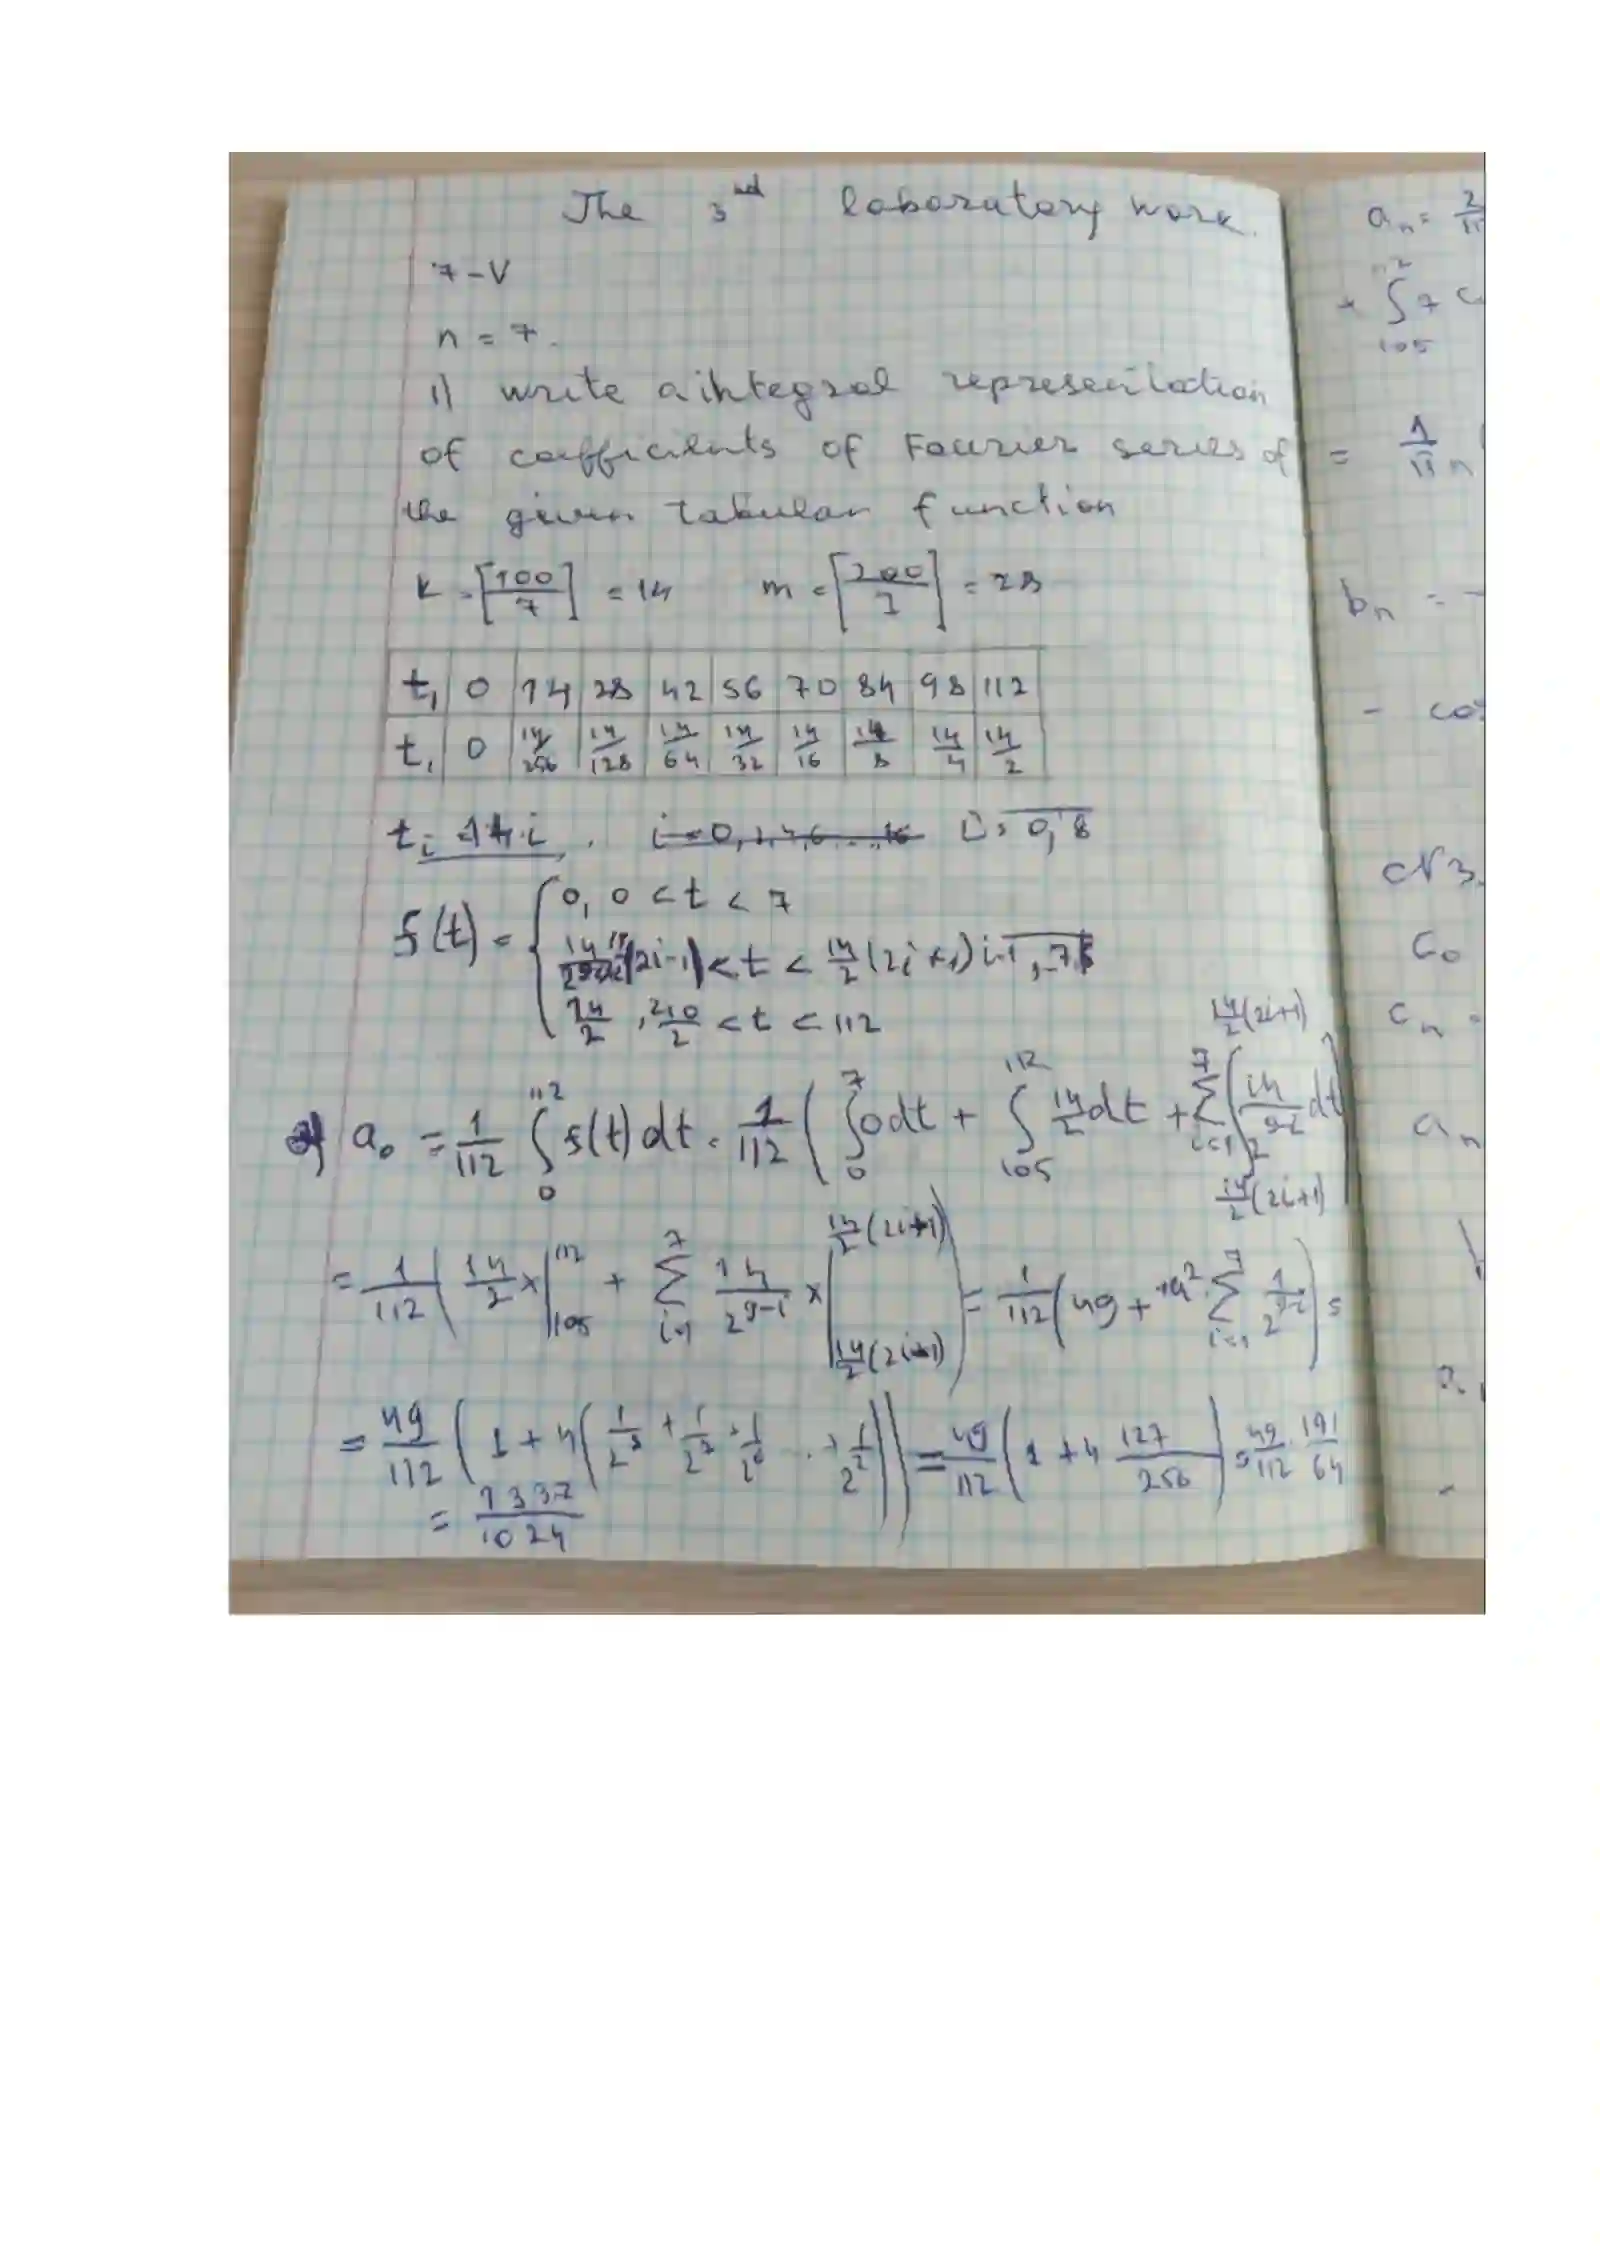 The 3rd laboratory work.
7-V
n = 7.
1) write a integral representation
of coefficients of Fourier series of
the given tabular function
k = [100/7] = 14 m = [200/7] = 28
t₁ 0 14 28 42 56 70 84 98 112
t₁ 0 14/256 14/128 14/64 14/32 14/16 14/8 14/4 14/2
t_i = 14·i , i = 0,8
f(t) = { 0, 0 < t < 7
(2i-1) < t < 14/2 (2i+1) i=1,7
14/2 , 210/2 < t < 112
a₀ = 1/112 ∫₀¹¹² f(t) dt = 1/112 ( ∫₀⁷ 0dt + ∫₁₀₅¹¹² 14/2 dt + Σᵢ₌₁⁷ ∫ 14/2^(9-i) dt 14/2(2i+1) 14/2(2i+1)
= 1/112 ( 14/2 x |₁₀₅¹¹² + Σᵢ₌₁⁷ 14/2^(9-i) x | 14/2(2i+1) 14/2(2i-1) ) = 1/112 ( 49 + 14² Σᵢ₌₁⁷ 1/2^(9-i) ) =
= 49/112 ( 1 + 4 ( 1/2⁸ + 1/2⁷ + 1/2⁶ ... + 1/2² )) = 49/112 ( 1 + 4 127/256 ) = 49/112 · 191/64
= 1337/1024
aₙ = 2
112
∫ 7 c
105
= 1/πn
bₙ = -
- cos
N3.
c₀
cₙ =
aₙ